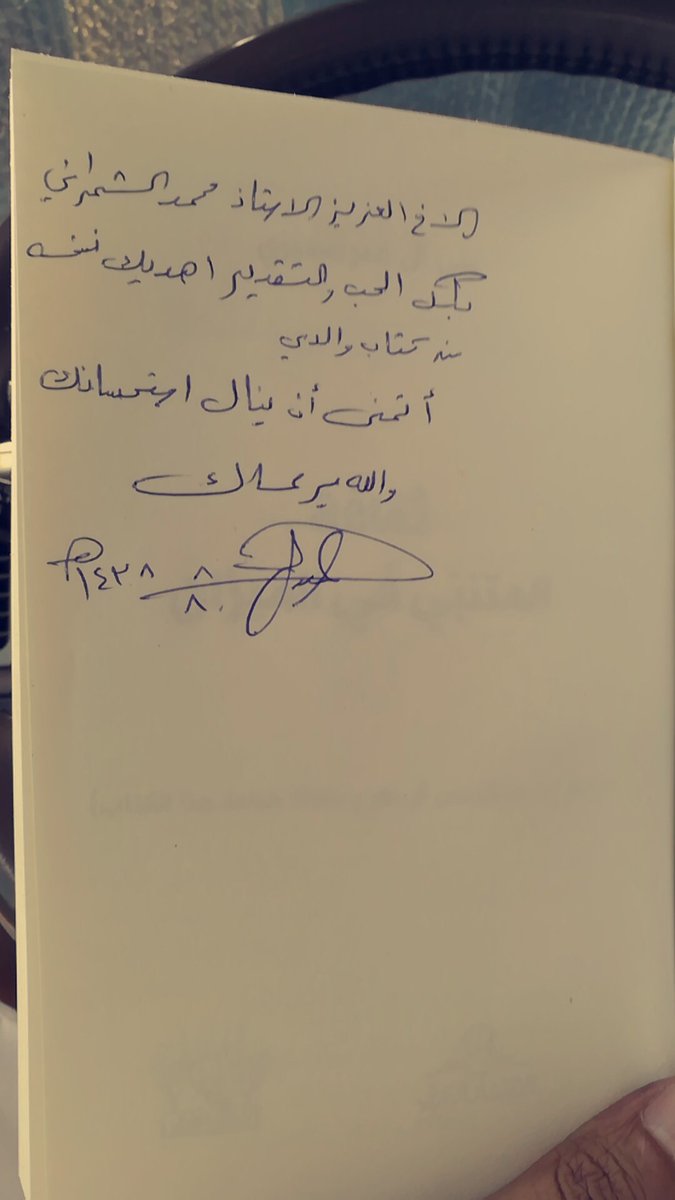 الاخ العزيز الاستاذ محمد الشمراني
بكل الحب والتقدير اهديك نسخه
من كتاب والدي
أتمنى أن ينال استحسانك
والله يرعاك
٨/٨/١٤٣٨هـ